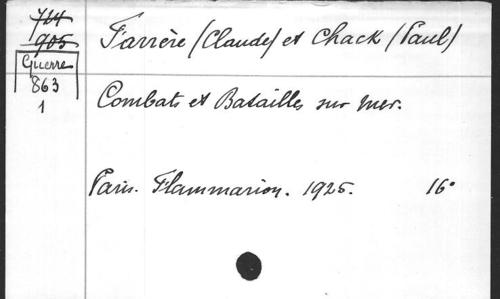 724
905
Guerre
863
1
Farrère (Claude) et Chack (Paul)
Combats et Batailles sur mer.
Paris. Flammarion. 1925. 16°